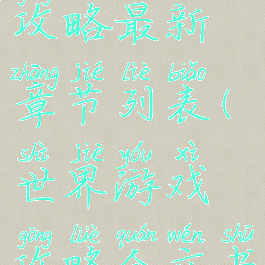 攻略最新
zhāng jié liè biǎo
章节列表(
shì jiè yóu xì
世界游戏
gōng lüè quán wén shū
攻略全文书